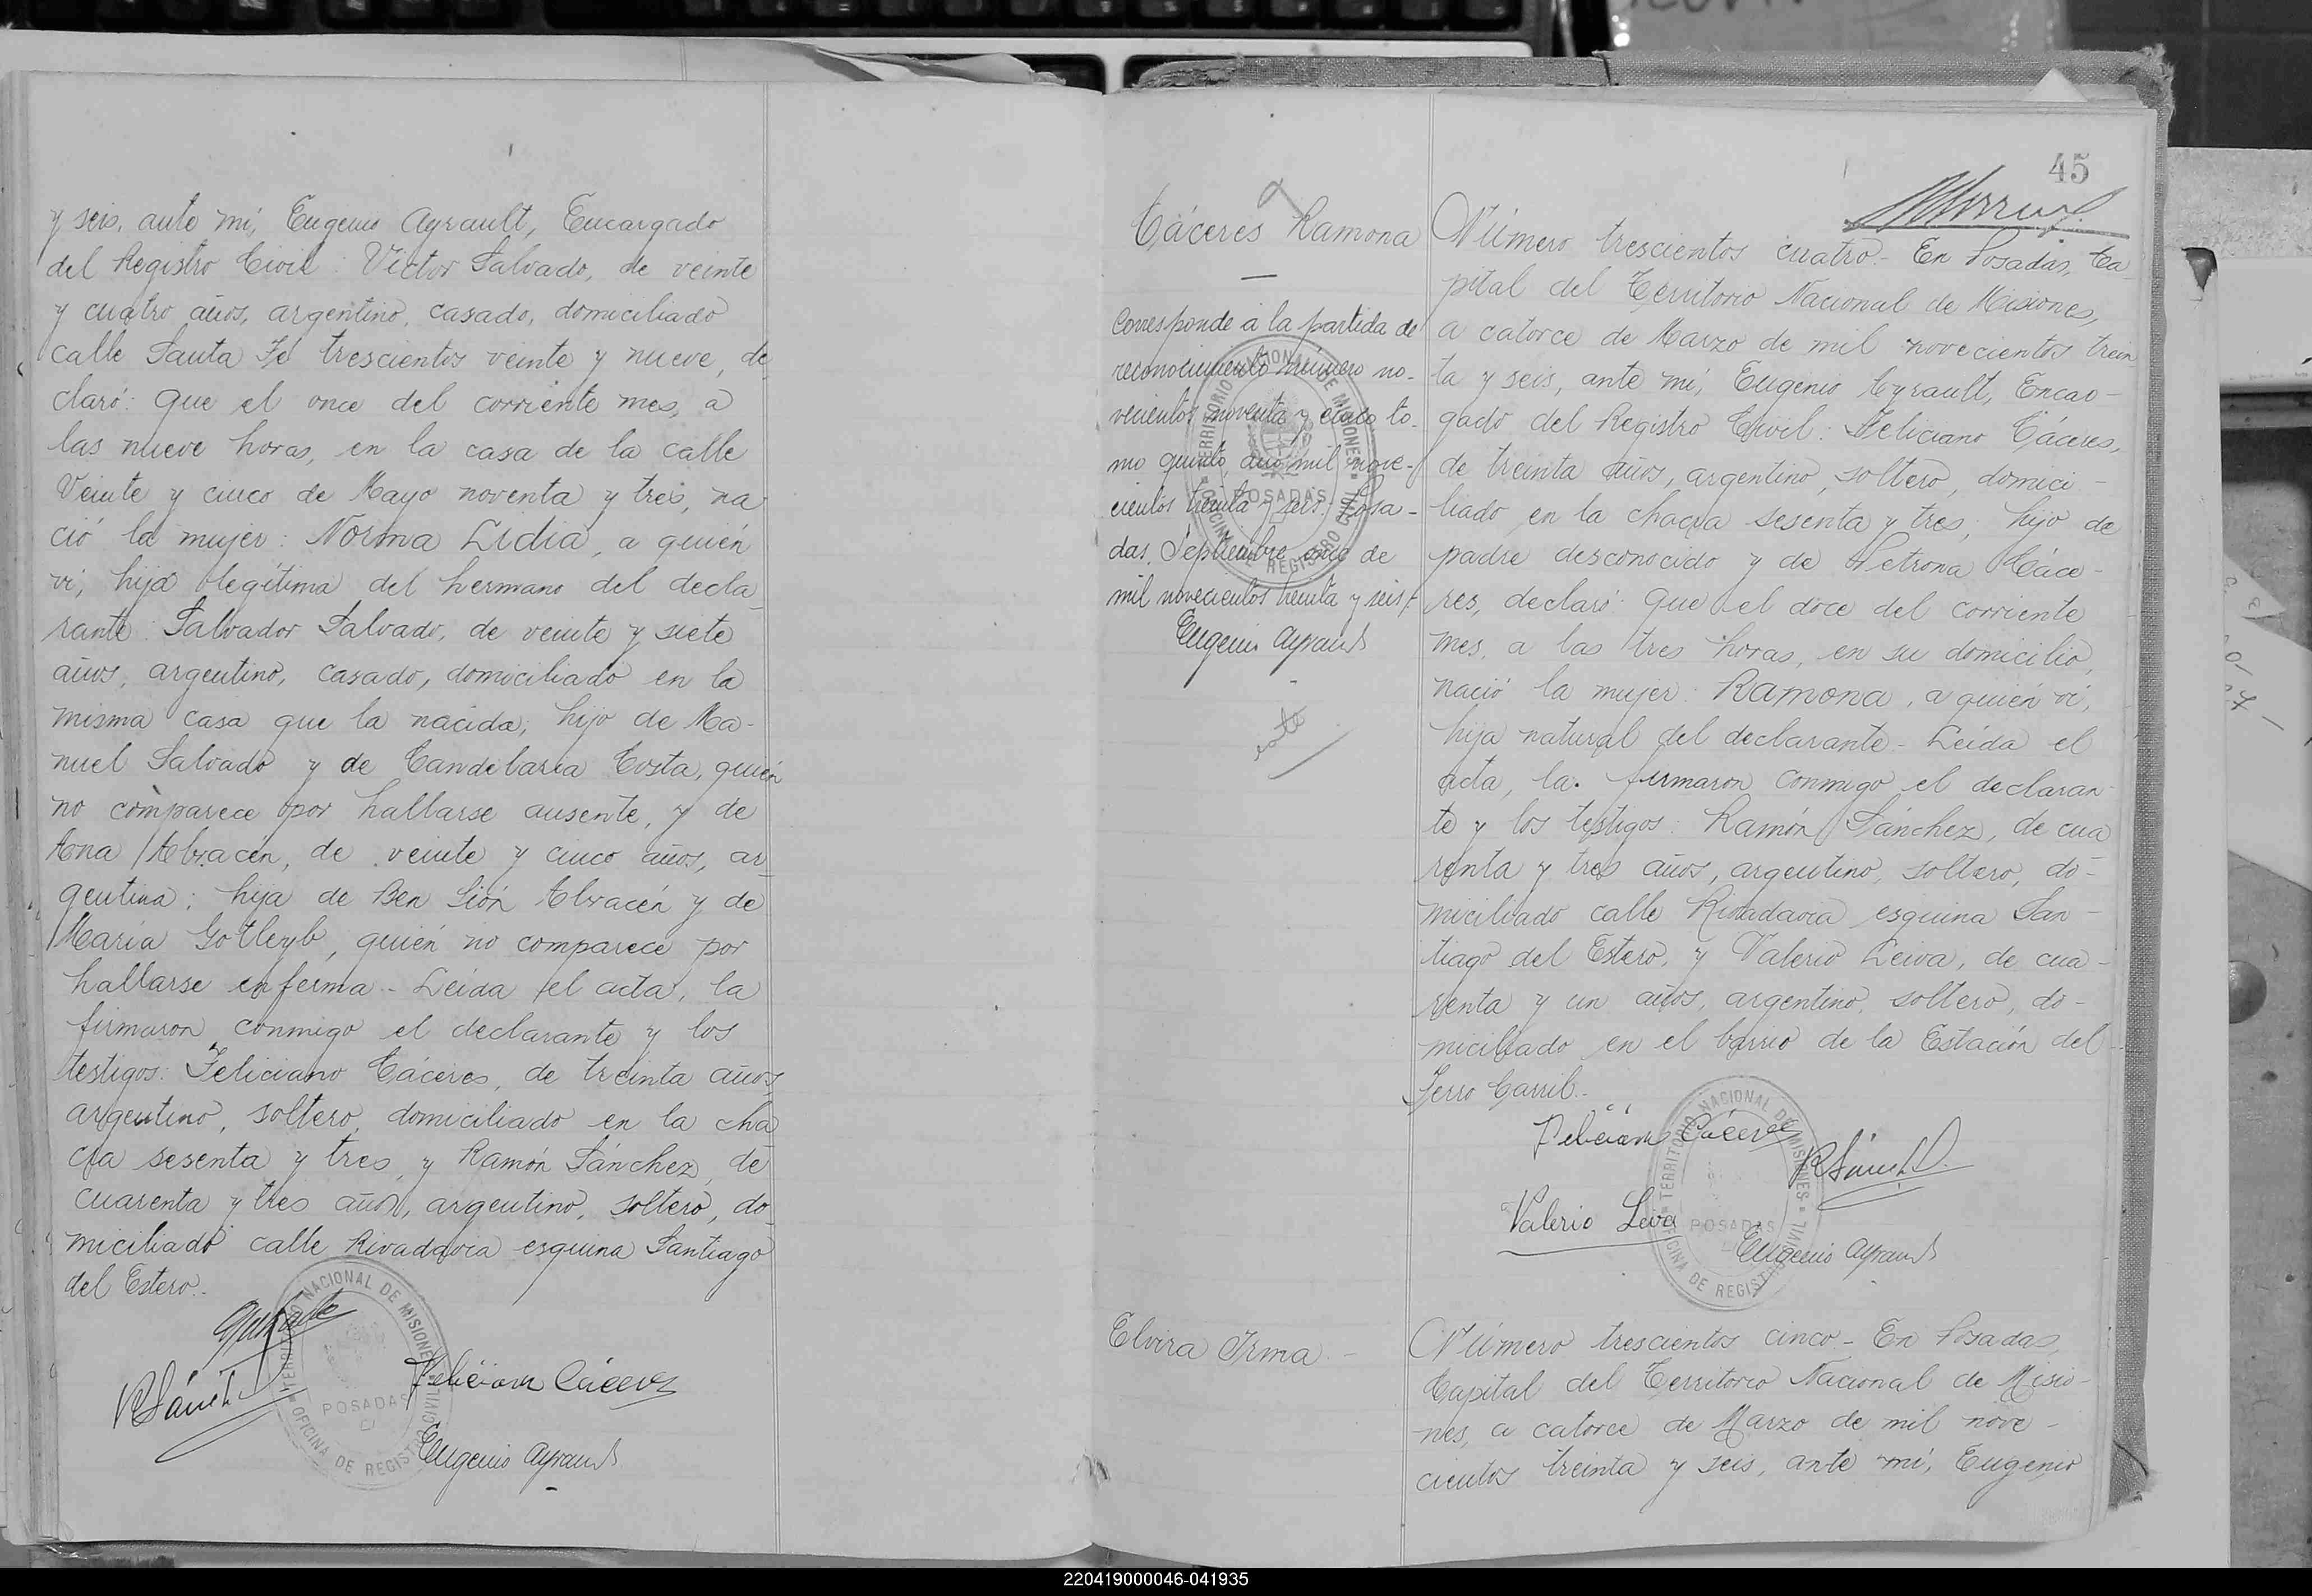 y seis, ante mí, Eugenio Ayrault, Encargado
del Registro Civil: Víctor Salvado, de veinte
y cuatro años, argentino, casado, domiciliado
calle Santa Fe trescientos veinte y nueve, de
claró: que el once del corriente mes, a
las nueve horas, en la casa de la calle
Veinte y cinco de Mayo noventa y tres, na
ció la mujer: Norma Lidia, a quién
ví, hija legítima del hermano del decla
rante: Salvador Salvado, de veinte y siete
años, argentino, casado, domiciliado en la
misma casa que la nacida; hijo de Ma-
nuel Salvado y de Candelaria Costa, quién
no comparece por hallarse ausente, y de
Ana Abracén, de veinte y cinco años, ar
gentina; hija de Ben Sión Abracén y de
María Gotleyb, quién no comparece por
hallarse enferma - Leída el acta, la
firmaron conmigo el declarante y los
testigos: Feliciano Cáceres, de treinta años
argentino, soltero, domiciliado en la cha
cra sesenta y tres, y Ramón Sánchez, de
cuarenta y tres años, argentino, soltero, do
miciliado calle Rivadavia esquina Santiago
del Estero.
TERRITORIO NACIONAL DE MISIONES
POSADAS
OFICINA DE REGISTRO CIVIL
Feliciano Cáceres
Eugenio Ayrault
45
Cáceres Ramona
Corresponde a la partida de
reconocimiento número no-
vecientos noventa y cinco to-
mo quinto, año mil nove-
cientos treinta y seis. Posa-
das, Septiembre once de
mil novecientos treinta y seis.
Eugenio Ayrault
TERRITORIO NACIONAL DE MISIONES
POSADAS
OFICINA DE REGISTRO CIVIL
Número trescientos cuatro - En Posadas, Ca
pital del Territorio Nacional de Misiones,
a catorce de Marzo de mil novecientos trein
ta y seis, ante mí, Eugenio Ayrault, Encar-
gado del Registro Civil: Feliciano Cáceres,
de treinta años, argentino, soltero, domici-
liado en la chacra sesenta y tres; hijo de
padre desconocido y de Petrona Cáce-
res, declaró: que el doce del corriente
mes, a las tres horas, en su domicilio,
nació la mujer: Ramona, a quién ví,
hija natural del declarante - Leída el
acta, la firmaron conmigo el declaran
te y los testigos: Ramón Sánchez, de cua
renta y tres años, argentino, soltero, do-
miciliado calle Rivadavia esquina San-
tiago del Estero, y Valerio Leiva, de cua-
renta y un años, argentino, soltero, do-
miciliado en el barrio de la Estación del
Ferro Carril.
Feliciano Cáceres
R Sánchez
Valerio Leiva
Eugenio Ayrault
TERRITORIO NACIONAL DE MISIONES
POSADAS
OFICINA DE REGISTRO CIVIL
Elvira Irma -
Número trescientos cinco - En Posadas,
Capital del Territorio Nacional de Misio-
nes, a catorce de Marzo de mil nove-
cientos treinta y seis, ante mí, Eugenio
220419000046-041935